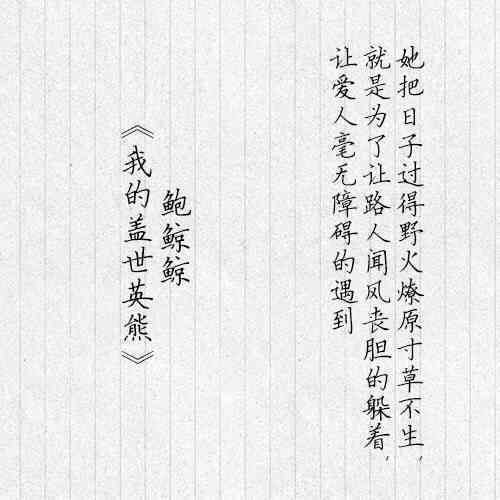 她把日子过得野火燎原寸草不生，
就是为了让路人闻风丧胆的躲着，
让爱人毫无障碍的遇到
鲍鲸鲸
《我的盖世英熊》